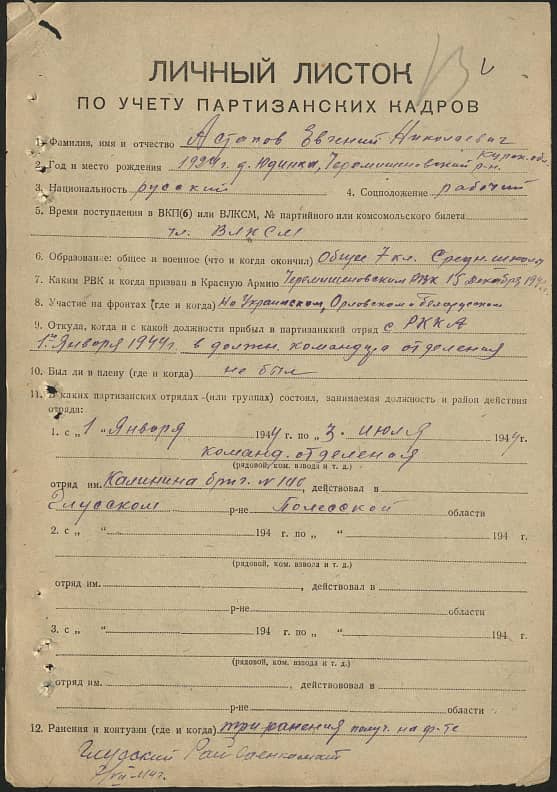 ЛИЧНЫЙ ЛИСТОК
ПО УЧЕТУ ПАРТИЗАНСКИХ КАДРОВ
1. Фамилия, имя и отчество Астапов Евгений Николаевич
2. Год и место рождения 1924 г. д. Юдинка, Черемишеновский р-н. Курск. обл.
3. Национальность русский 4. Соцположение рабочий
5. Время поступления в ВКП(б) или ВЛКСМ, № партийного или комсомольского билета
чл. ВЛКСМ
6. Образование: общее и военное (что и когда окончил) Общее 7 кл. Средн. школы
7. Каким РВК и когда призван в Красную Армию Черемишеновским РВК 15 декабря
8. Участие на фронтах (где и когда) На Украинском, Орловском и Белорусском
9. Откуда, когда и с какой должности прибыл в партизанкий отряд с РККА
1го Января 1944 г. в должн. командира отделения
10. Был ли в плену (где и когда) не был
11. В каких партизанских отрядах (или группах) состоял, занимаемая должность и район действия
отряда:
1. с „ 1 “ Января 1944 г. по „ 3 “ июля 1944 г.
команд. отделения
(рядовой, ком. взвода и т. д.)
отряд им. Калинина бриг. № 100, действовал в
Глусском р-не Полесской области
2. с „ “ 194 г. по „ “ 194 г.
(рядовой, ком. взвода и т. д.)
отряд им. , действовал в
р-не области
3. с „ “ 194 г. по „ “ 194 г.
(рядовой, ком. взвода и т. д.)
отряд им. , действовал в
р-не области
12. Ранения и контузии (где и когда) три ранения получ. на фр-те
Глусский Райвоенкомат